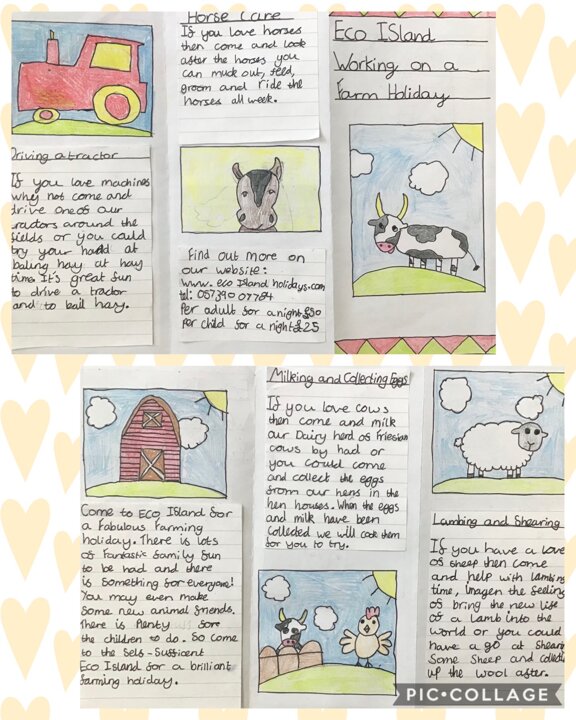 Horse Care
If you love horses
then come and look
after the horses you
can muck out, feed,
groom and ride the
horses all week.
Driving a tractor
If you love machines
why not come and
drive one of our
tractors around the
fields or you could
try your hand at
baling hay at hay
time. It's great fun
to drive a tractor
and to bail hay.
Find out more on
our website:
www.eco Island holidays.com
tel: 057390 07784
Per adult for a night £50
Per child for a night £25
Eco ISland
Working on a
Farm Holiday
Come to Eco Island for
a Fabulous farming
holiday. There is lots
of Fantastic family fun
to be had and there
is Something for everyone!
You may even make
Some new animal friends.
There is Plenty for
the children to do. So come
to the Self-Sufficent
Eco Island for a brilliant
farming holiday.
Milking and Collecting Eggs
If you love cows
then come and milk
our Dairy herd of friesian
cows by had or
you could come
and collect the eggs
from our hens in the
hen houses. When the eggs
and milk have been
Collected we will cook them
for you to try.
Lambing and Shearing
If you have a love
of sheep then come
and help with lambing
time, imagen the feeling
of bring the new life
of a lamb into the
world or you could
have a go at shearing
Some Sheep and collecti
up the wool after.
PIC•COLLAGE